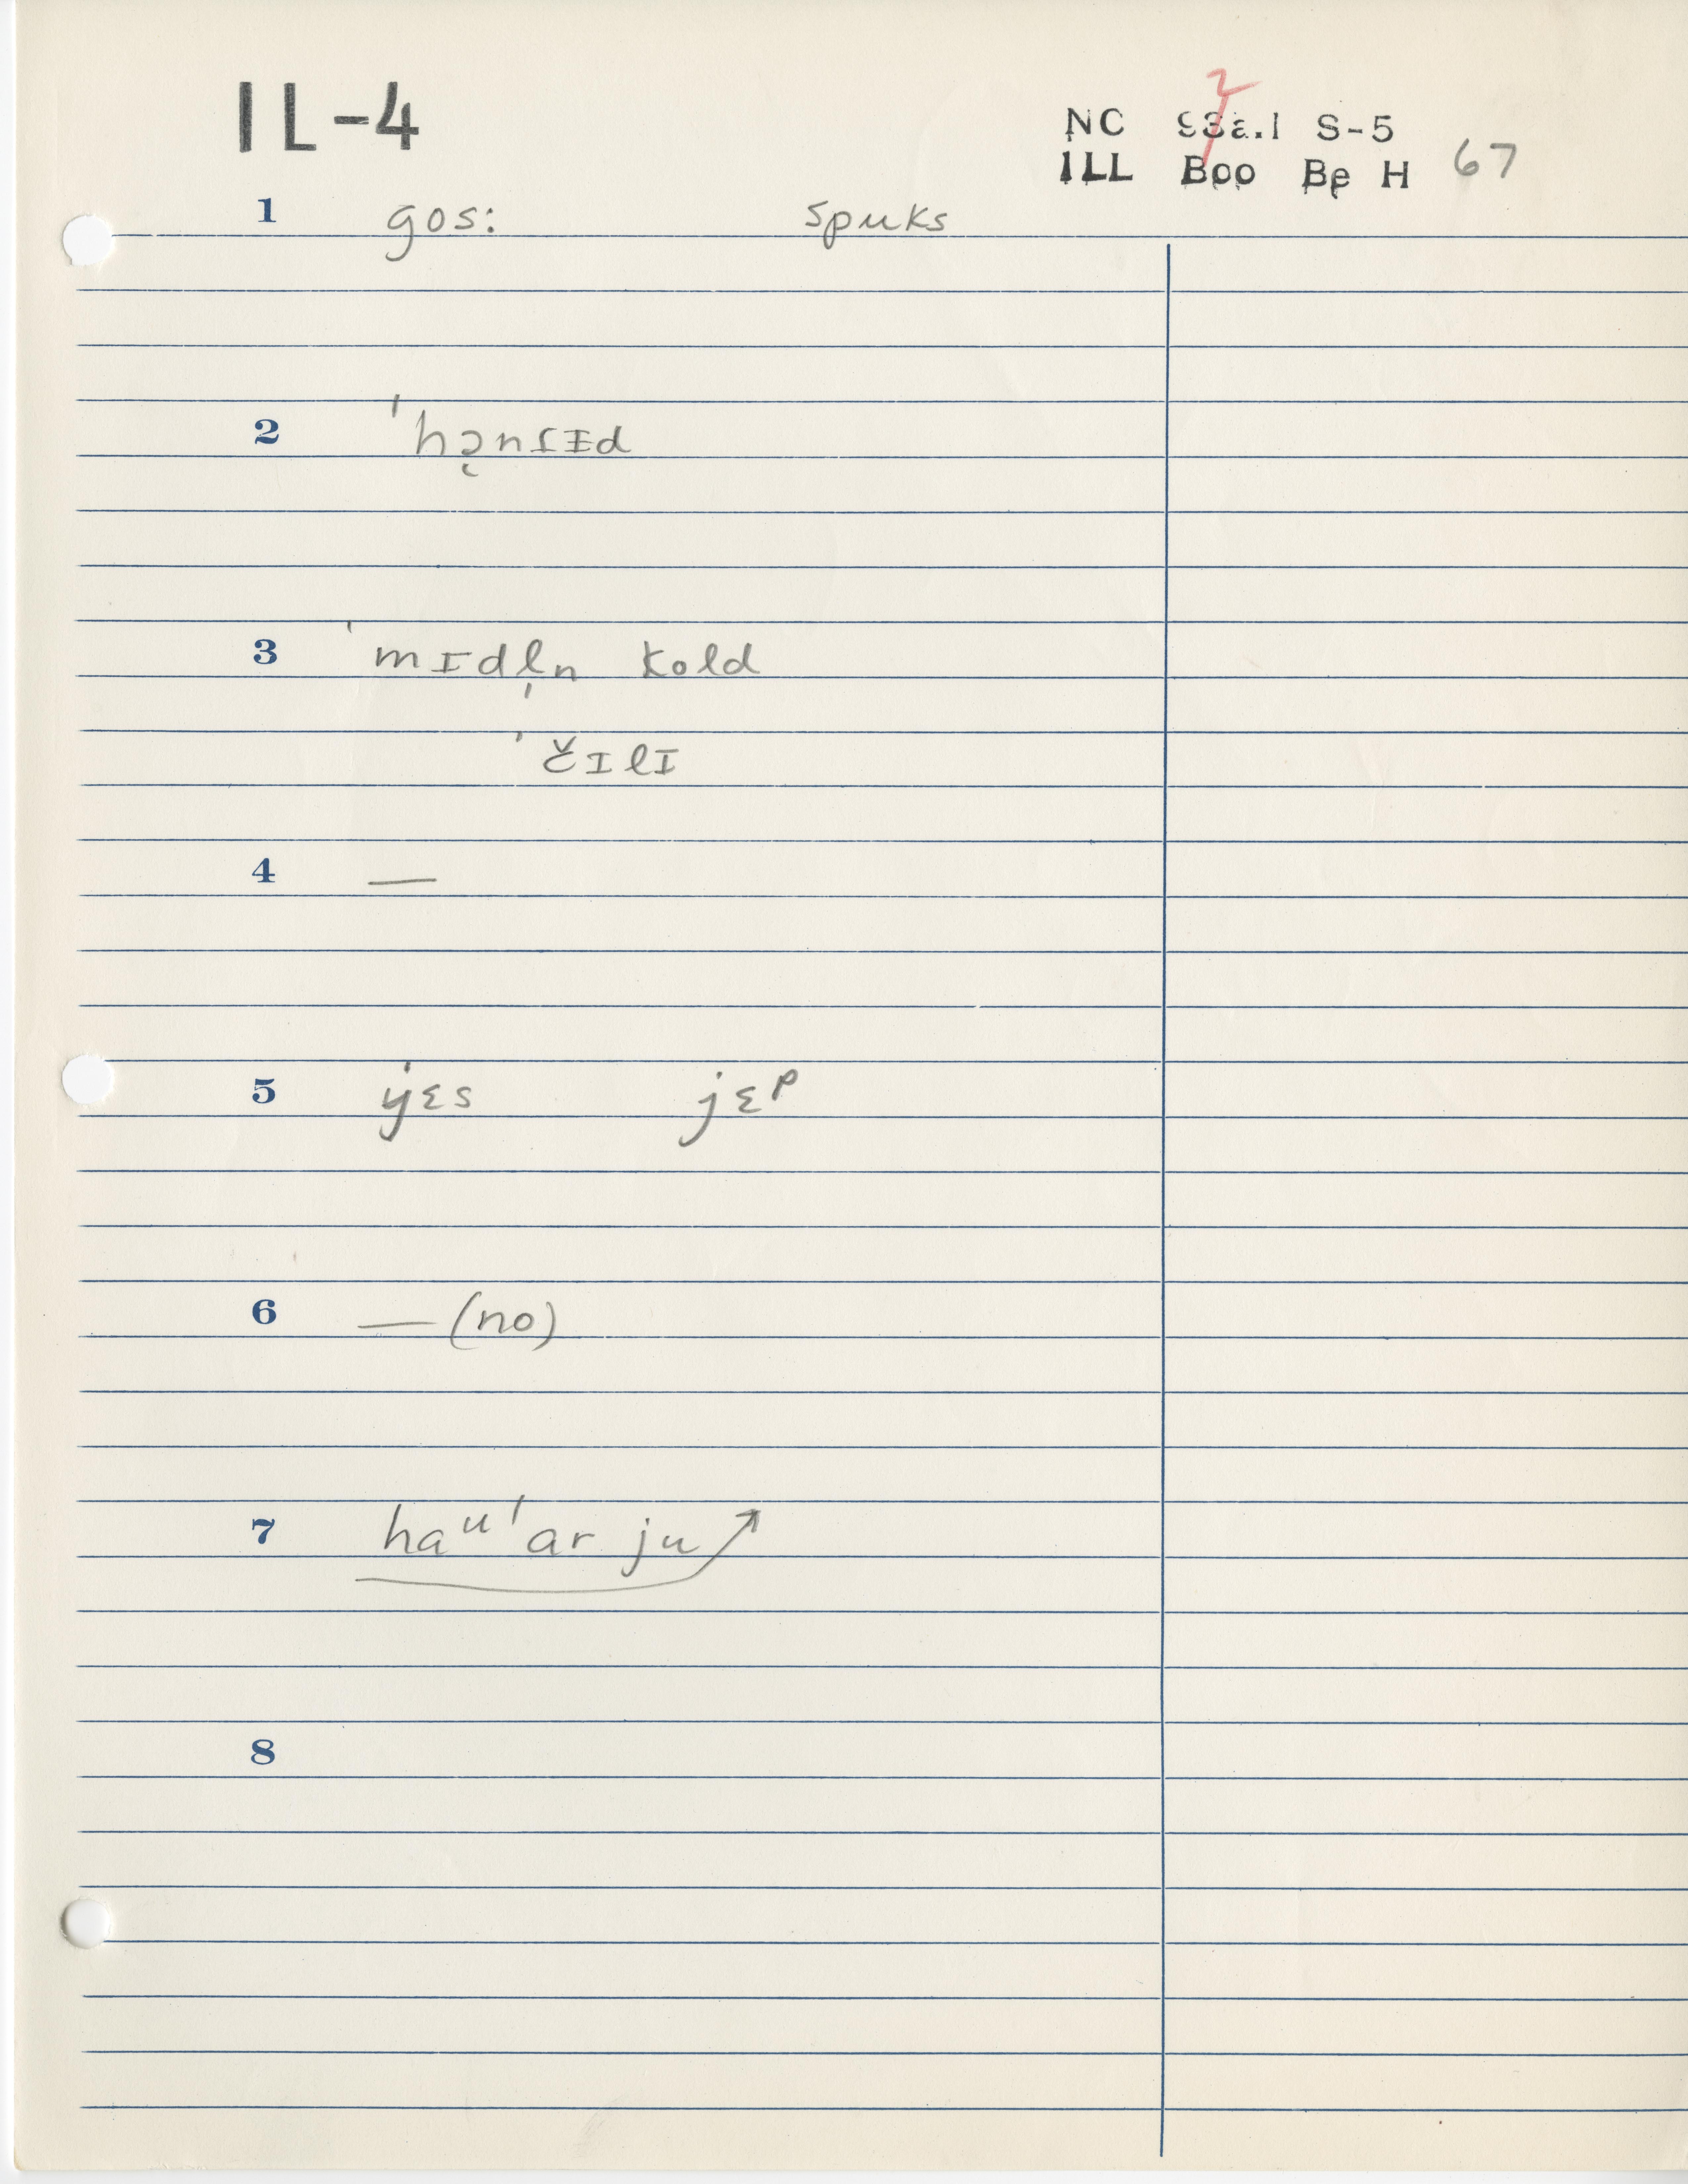 IL-4
NC 93a.1 S-5
2
ILL Boo Be H 67
1 gos: spuks
2 ˈhə̨nſɪd
3 ˈmɪdl̩n kold
ˈčɪlɪ
4 —
5 ẏɛs jɛᵖ
6 — (no)
7 haᵘ ˈar ju ↗
8